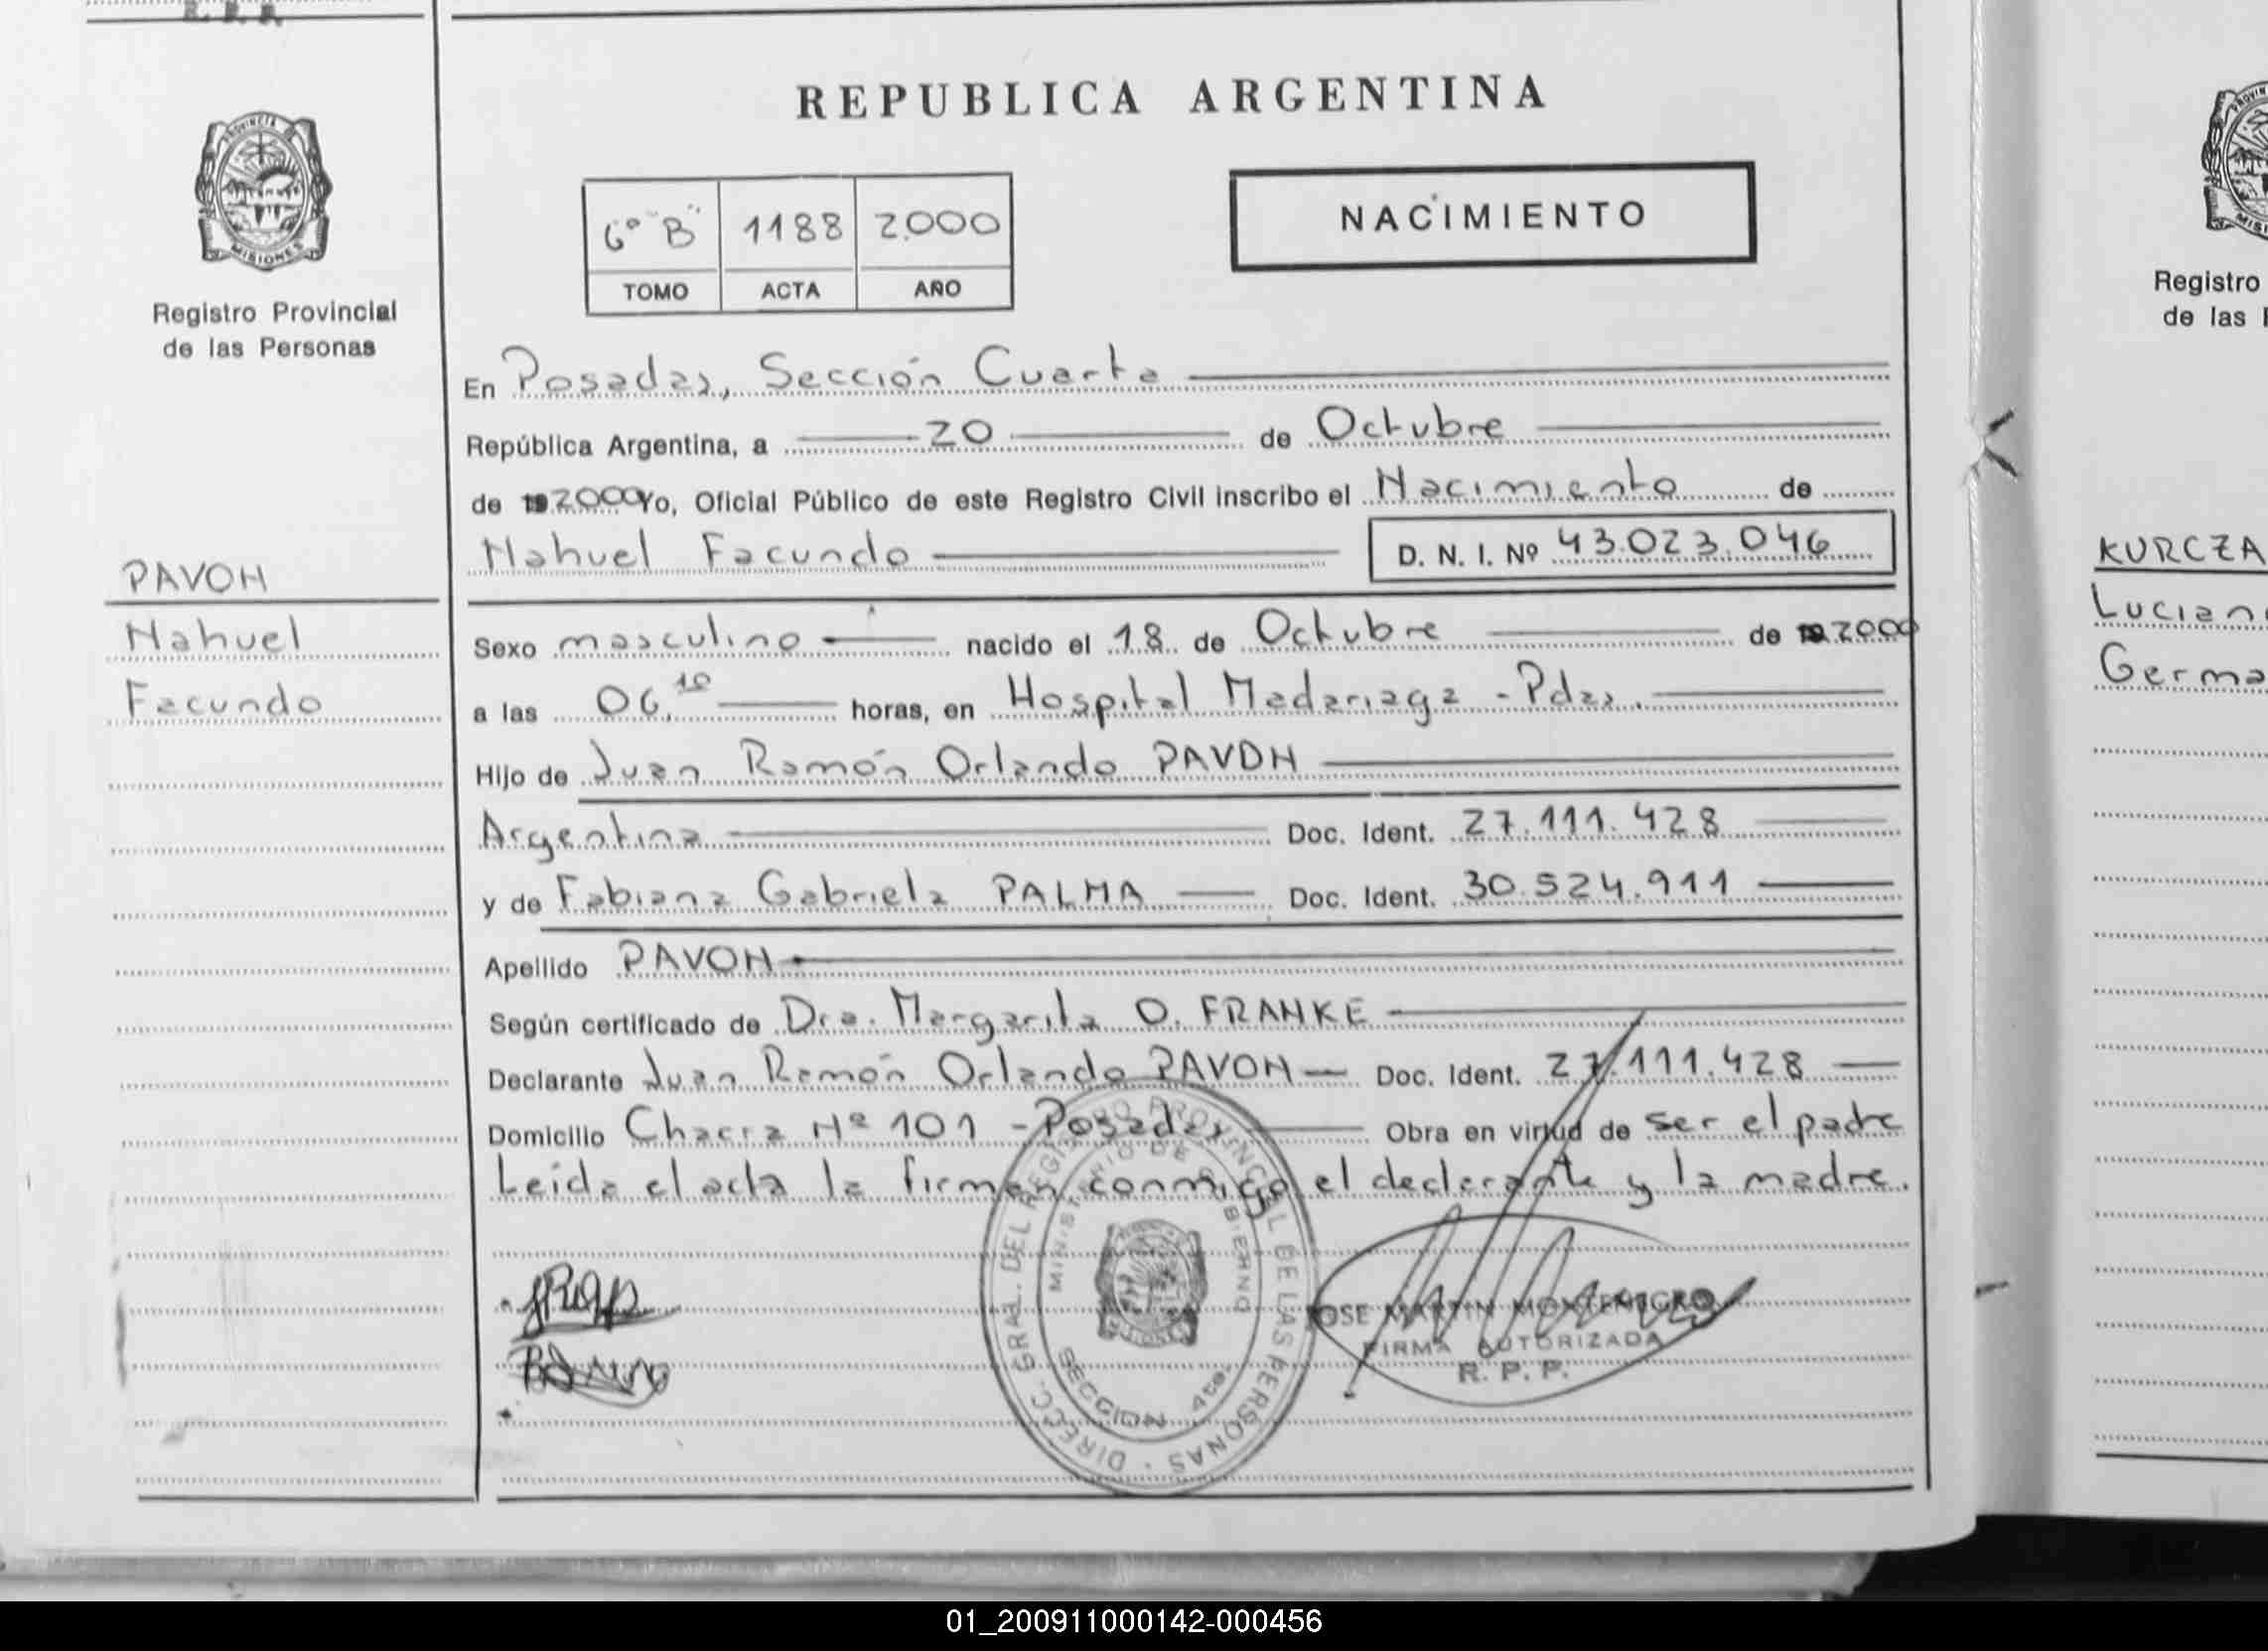 REPUBLICA ARGENTINA
PROVINCIA
MISIONES
Registro Provincial
de las Personas
6º "B" 1188 2.000
TOMO ACTA AÑO
NACIMIENTO
En Posadas, Sección Cuarta
República Argentina, a 20 de Octubre
de 19 2000 Yo, Oficial Público de este Registro Civil inscribo el Nacimiento de
Nahuel Facundo D. N. I. Nº 43.023.046
PAVON
Nahuel
Facundo
Sexo masculino nacido el 18 de Octubre de 19 2000
a las 06,10 horas, en Hospital Madariaga - Pdas.
Hijo de Juan Ramón Orlando PAVON
Argentina Doc. Ident. 27.111.428
y de Fabiana Gabriela PALMA Doc. Ident. 30.524.911
Apellido PAVON
Según certificado de Dra. Margarita O. FRANKE
Declarante Juan Ramón Orlando PAVON Doc. Ident. 27.111.428
Domicilio Chacra Nº 101 - Posadas Obra en virtud de ser el padre
Leída el acta la firman conmigo el declarante y la madre.
DIRECC. GRAL. DEL REGISTRO PROVINCIAL DE LAS PERSONAS
MINISTERIO DE GOBIERNO
SECCION 4ta.
JOSE MARTIN MONTENEGRO
FIRMA AUTORIZADA
R. P. P.
Registro
de las
KURCZA
Lucian
Germa
01_200911000142-000456